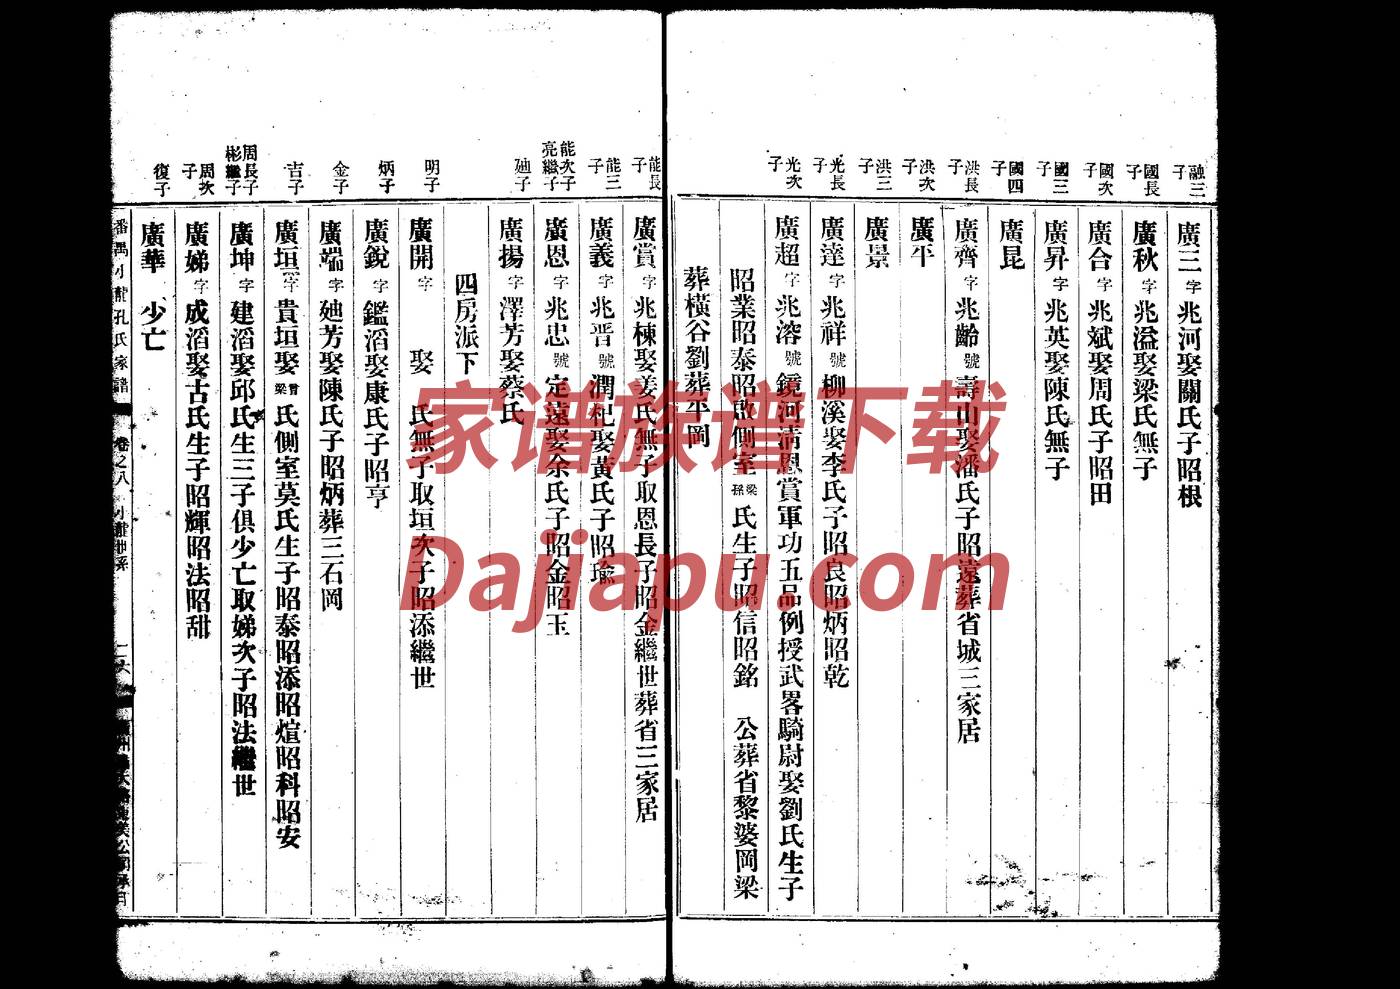 融三子
廣三字兆河娶關氏子昭根
國長子
廣秋字兆溢娶梁氏無子
國次子
廣合字兆斌娶周氏子昭田
國三子
廣昇字兆英娶陳氏無子
國四子
廣昆
洪長子
廣齊字兆齡號壽山娶潘氏子昭遠葬省城三家居
洪次子
廣平
洪三子
廣景
光長子
廣達字兆祥號柳溪娶李氏子昭良昭炳昭乾
光次子
廣超字兆溶號鏡河清恩賞軍功五品例授武畧騎尉娶劉氏生子
昭業昭泰昭啟側室梁孫氏生子昭信昭銘 公葬省黎婆岡梁
葬橫谷劉葬平岡
能長子
廣賞字兆棟娶姜氏無子取恩長子昭金繼世葬省三家居
能三子
廣義字兆晋號潤祀娶黃氏子昭瑜
能次子亮繼子
廣恩字兆忠號定遠娶余氏子昭金昭玉
廸子
廣揚字澤芳娶蔡氏
四房派下
明子
廣開字 娶 氏無子取垣次子昭添繼世
炳子
廣銳字鑑滔娶康氏子昭亨
金子
廣端字廸芳娶陳氏子昭炳葬三石岡
吉子
廣垣字貴垣娶曾梁氏側室莫氏生子昭泰昭添昭煊昭科昭安
周長子彬繼子
廣坤字建滔娶邱氏生三子俱少亡取娣次子昭法繼世
周次子
廣娣字成滔娶古氏生子昭輝昭法昭甜
復子
廣華 少亡
番禺小龍孔氏家譜 卷之八 小龍世系 二六
家谱族谱下载
Dajiapu.com